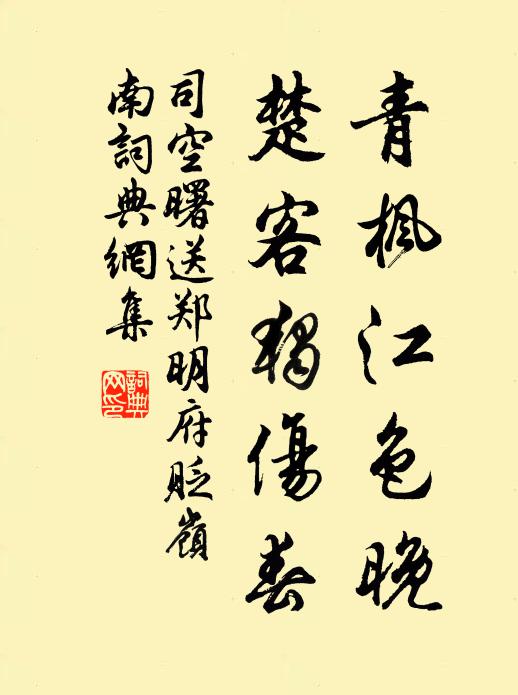 青楓江色晚
楚客獨傷春
司空曙送郑明府貶嶺
南詞典網集
詞典
网印